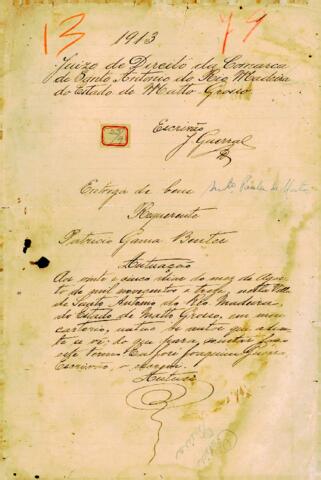 13 79
1913
Juizo de Direito da Comarca
de Santo Antonio do Rio Madeira
do Estado de Matto Grosso
Escrivão
J. Guerra
Entrega de bens
Requerente
Patricio Gama Bentes
Autuação
Aos vinte e cinco dias do mez de Agos-
to de mil novecentos e treze, nesta Villa
de Santo Antonio do Rio Madeira
do Estado de Matto Grosso, em meu
cartorio, autuo a que adian-
te se vê; do que para constar faço
este termo. Eu Joaquim Guerra
Escrivão, o
Autuei